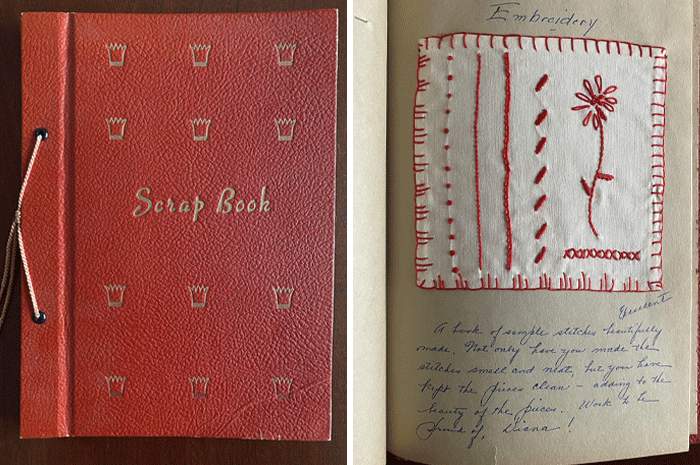 Scrap Book
Embroidery
Excellent
A book of sample stitches beautifully
made. Not only have you made the
stitches small and neat, but you have
kept the pieces clean — adding to the
beauty of the pieces. Work to be
proud of, Diana!